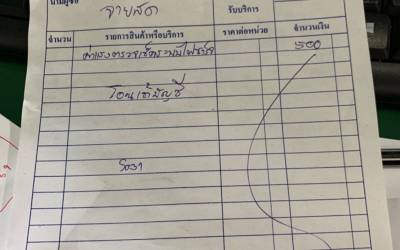 นามผู้ซื้อ จ่ายสด รับบริการ
จำนวน รายการสินค้าหรือบริการ ราคาต่อหน่วย จำนวนเงิน
ค่าแรงตรวจเช็คระบบไฟชาร์จ 500
โอนเข้าบัญชี